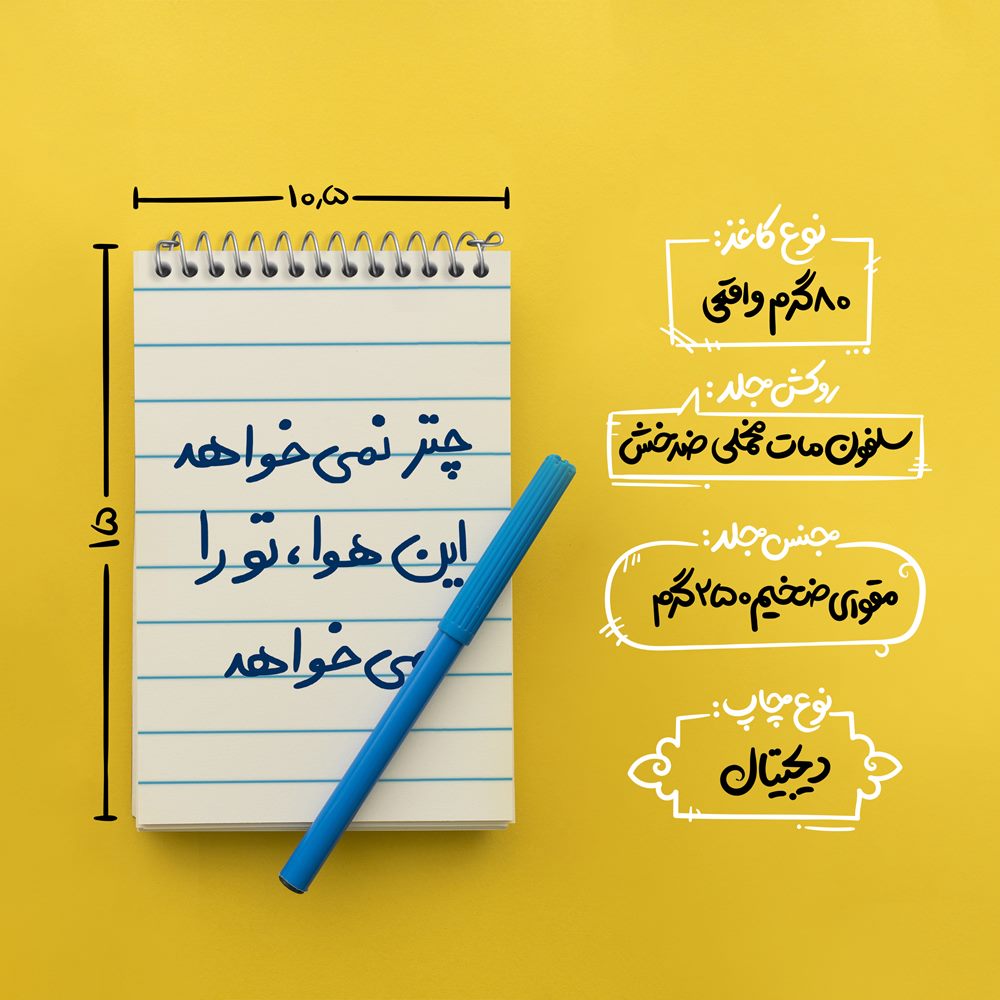 ۱۰٫۵
۱۵
چتر نمی خواهد
این هوا، تو را
می خواهد
نوع کاغذ:
۸۰گرم واقعی
روکش جلد:
سلفون مات مخملی ضدخش
جنس جلد:
مقوای ضخیم ۲۵۰گرم
نوع چاپ:
دیجیتال